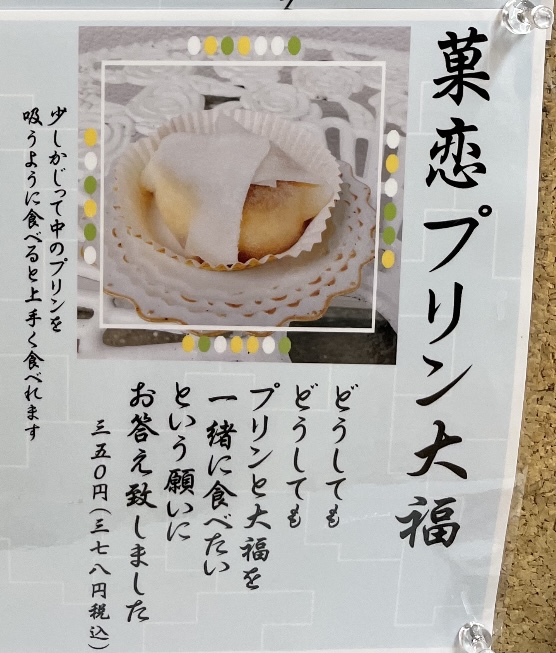 菓恋プリン大福
どうしても
どうしても
プリンと大福を
一緒に食べたい
という願いに
お答え致しました
三五〇円(三七八円税込)
少しかじって中のプリンを
吸うように食べると上手く食べれます